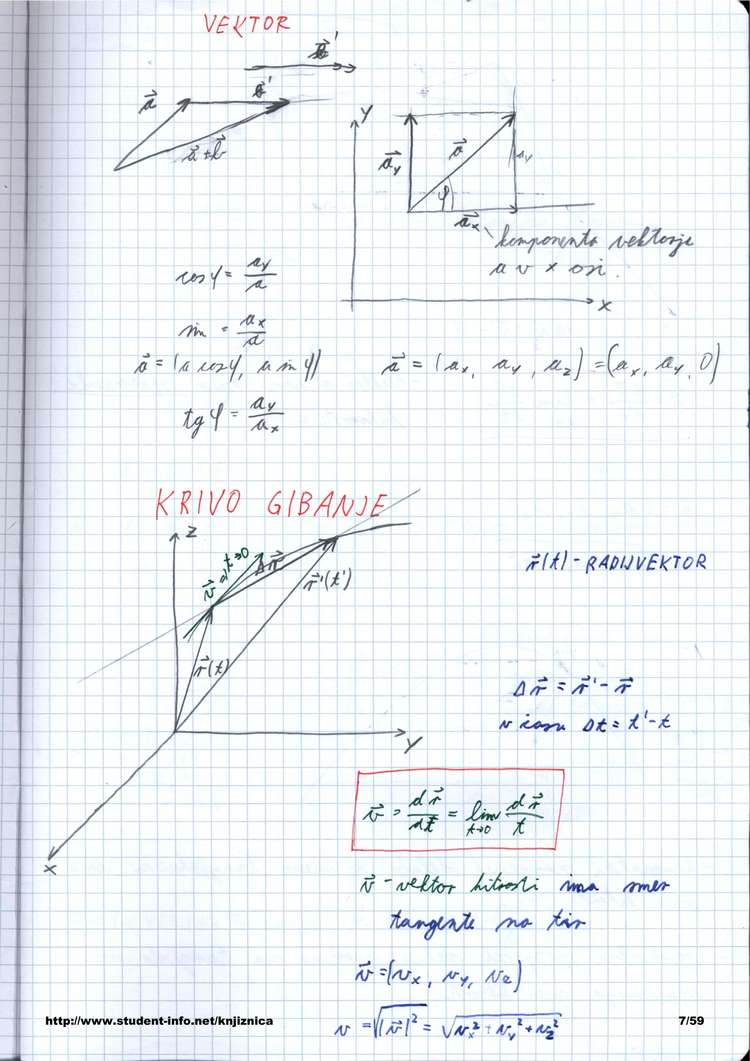 VEKTOR
b⃗'
a⃗
b⃗'
a⃗ + b⃗
y
a⃗y
a⃗
ay
φ
a⃗x
komponenta vektorja
a v x osi.
x
cos φ = ay/a
sin = ax/a
a⃗ = (a cos φ, a sin φ)
a⃗ = (ax, ay, az) = (ax, ay, 0)
tg φ = ay/ax
KRIVO GIBANJE
z
t→0
Δr⃗
r⃗'(t')
r⃗(t) - RADIJVEKTOR
r⃗(t)
Δr⃗ = r⃗' - r⃗
v času Δt = t' - t
y
v⃗ = dr⃗/dt = lim t→0 dr⃗/t
x
v⃗ - vektor hitrosti ima smer
tangente na tir
v⃗ = (vx, vy, vz)
http://www.student-info.net/knjiznica
v = √|v⃗|² = √vx² + vy² + vz²
7/59